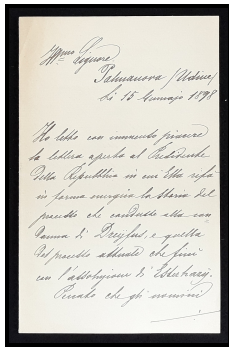 Ill.mo Signore
Palmanova (Udine)
li 15 Gennajo 1898
Ho letto con immenso piacere
la lettera aperta al Presidente
della Repubblica in cui Ella rifà
in forma energica la storia del
processo che condusse alla con
danna di Dreyfus, e quella
del processo attuale che finì
con l'assoluzione di Esterhazy.
Pensato che gli uomini